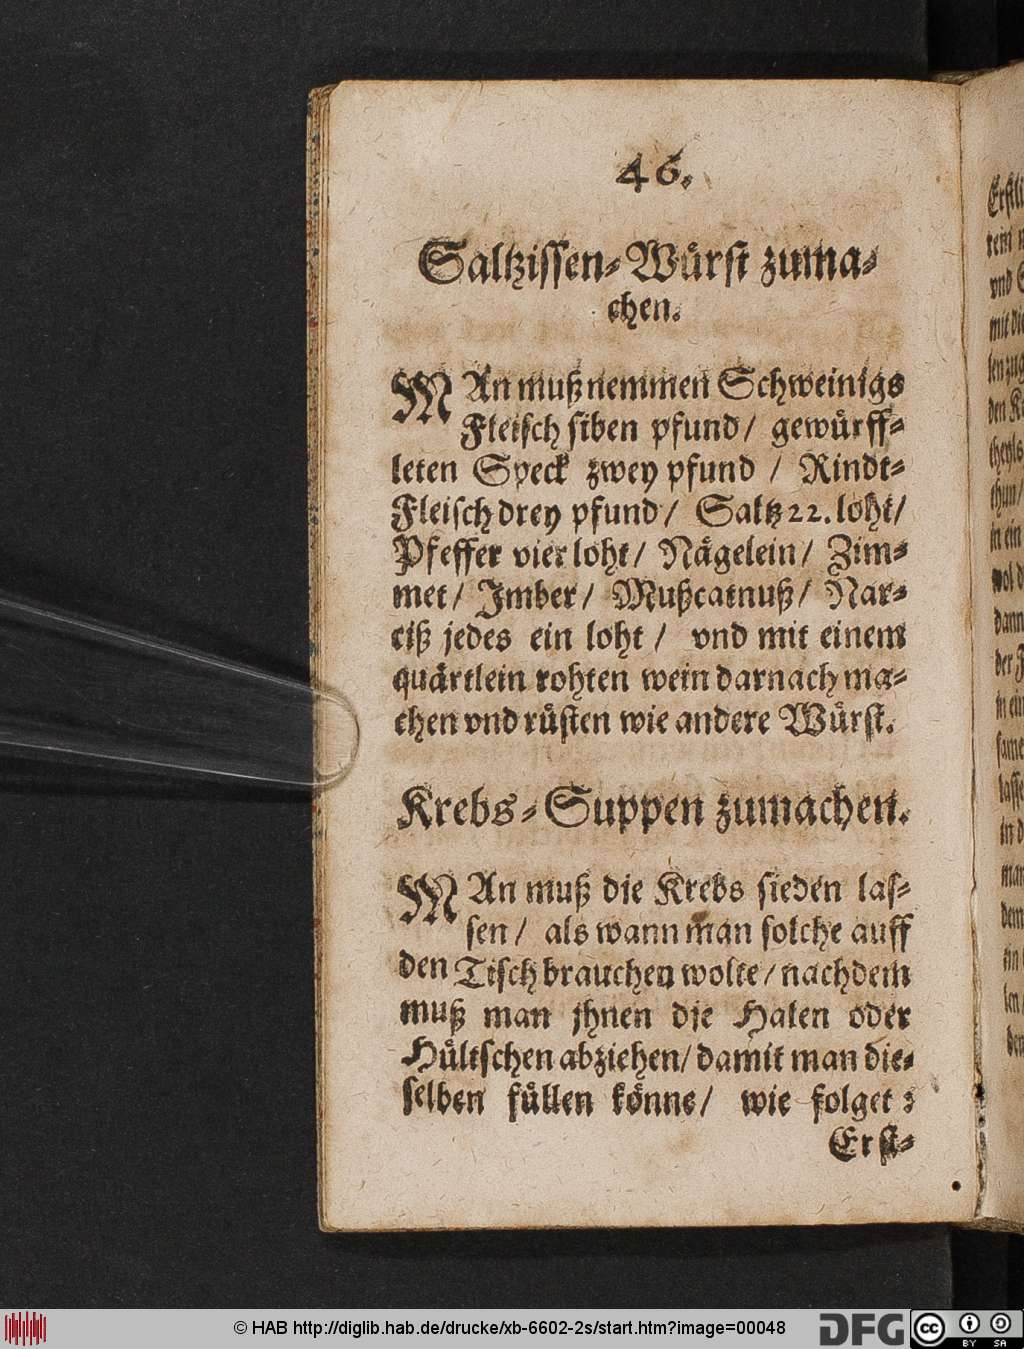 46.
Saltzissen-Würst zuma-
chen.
MAn muß nemmen Schweinigs
Fleisch siben pfund/ gewürff-
leten Speck zwey pfund / Rindt-
Fleisch drey pfund/ Saltz 22. loht/
Pfeffer vier loht/ Nägelein/ Zim-
met/ Imber/ Mußcatnuß/ Nar-
ciß jedes ein loht / vnd mit einem
quärtlein rohten wein darnach ma-
chen vnd rüsten wie andere Würst.
Krebs-Suppen zumachen.
MAn muß die Krebs sieden las-
sen/ als wann man solche auff
den Tisch brauchen wolte/ nachdem
muß man jhnen die Halen oder
Hültschen abziehen/ damit man die-
selben füllen könne/ wie folget:
Erst-
Erstli
rein
vnd
mit die
len zug
den K
theyls
thun/
in ein
wol d
dann
der F
in ein
same
lasse
in d
man
dem
ein
len
den
© HAB http://diglib.hab.de/drucke/xb-6602-2s/start.htm?image=00048
DFG
cc BY SA